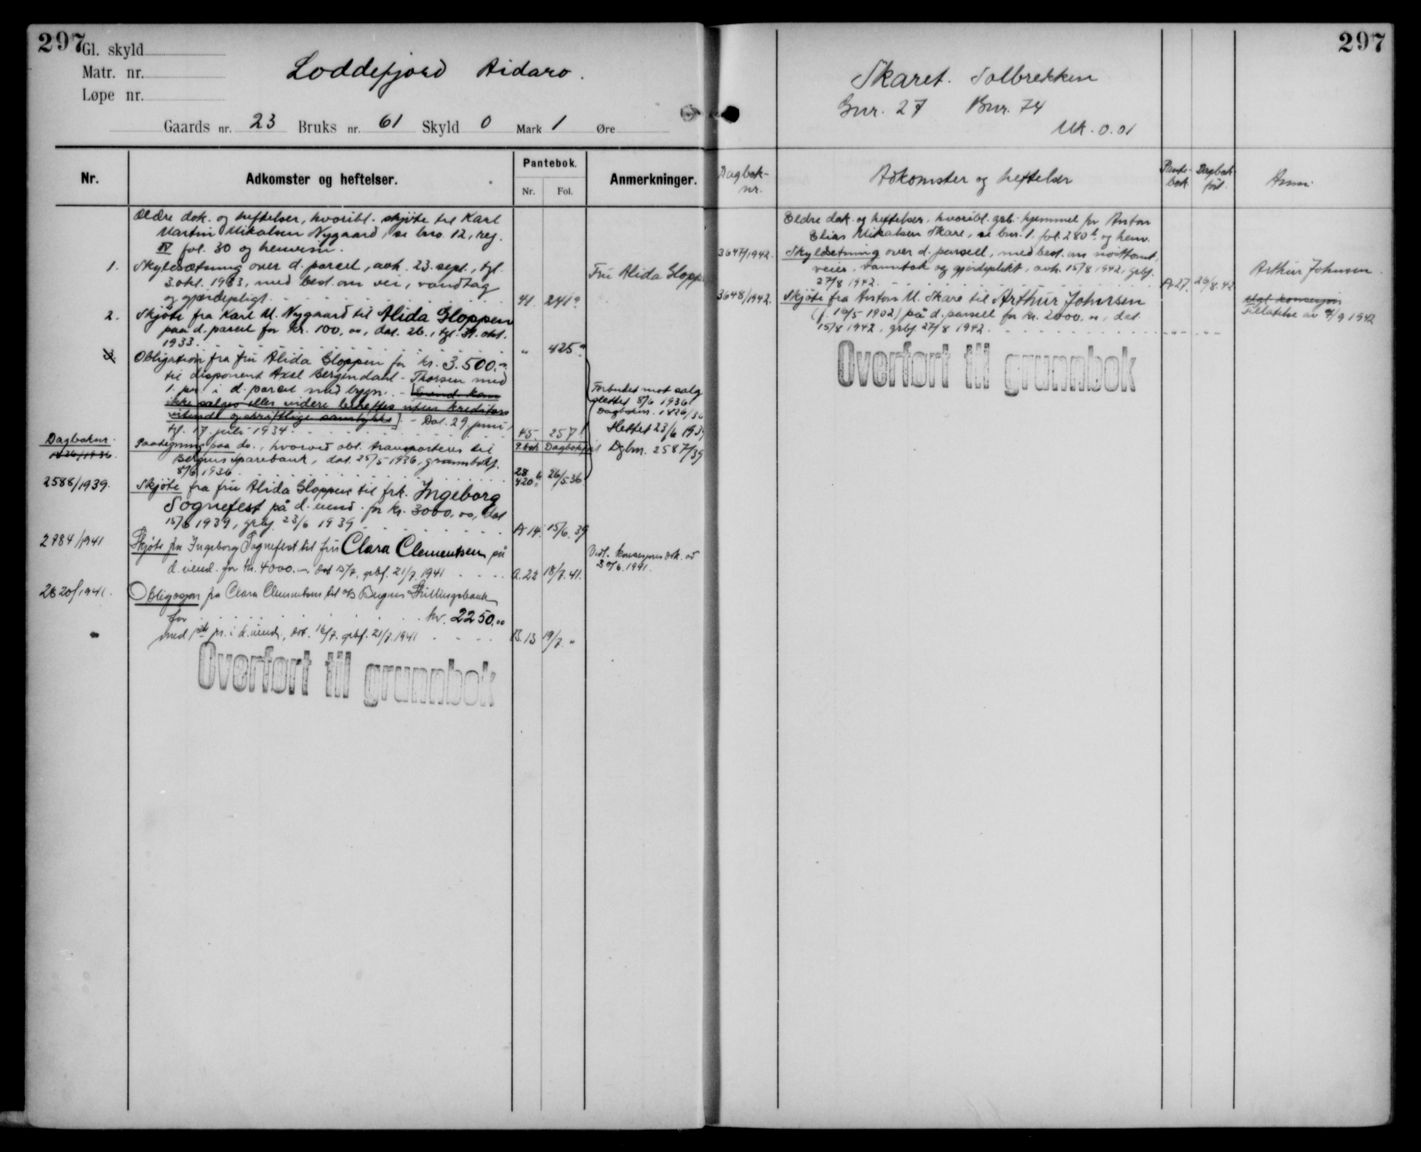 297
Gl. skyld
Matr. nr.
Løpe nr.
Loddefjord Aidaro.
Gaards nr. 23 Bruks nr. 61 Skyld 0 Mark 1 Øre
Nr.
Adkomster og heftelser.
Pantebok.
Nr. Fol.
Anmerkninger.
Ældre dok. og heftelser, hvoribl. skjøte til Karl
Martin Mikalsen Nygaard, se bno. 12, reg.
IV fol. 30 og henvisn.
1. Skyldsætning over d. parcel, avh. 23. sept., tgl.
3. okt. 1933, med best. om vei, vandtag
og gjerdepligt. 41. 241
Fru Alida Gloppen
2. Skjøte fra Karl M. Nygaard til Alida Gloppen
paa d. parcel for kr. 100.00, dat. 26., tgl. 31. okt.
1933. " 425
3. Obligation fra fru Alida Gloppen for kr. 3.500.-
til disponent Axel Bergendahl-Thorsen med
1. pr. i d. parcel med bygn. - [Eiend. kan
ikke sælges eller videre beheftes uten kreditors
vitende og skriftlige samtykke] - Dat. 29. juni,
tgl. 17. juli 1934 45. 257
Forbudet mot salg
slettet 8/6 1936
Dagboknr. 1826/36
Slettet 23/6 1939
Dgbnr. 2587/39
Dagboknr.
1826/1936. Paategning paa do., hvorved obl. transporteres til
P.bok Dagbokført
Bergens Sparebank, dat. 25/5-1936, grunnbokf.
8/6 1936 28 420 26/5.36
2588/1939. Skjøte fra fru Alida Gloppen til frk. Ingeborg
Sognefest på d. eiend. for kr. 3000,00, dat.
15/6 1939, grbf. 23/6 1939 A 14. 15/6.39
2984/1941 Skjøte fra Ingeborg Sognefest til fru Clara Clementsen på
d. eiend. for kr. 4000.- dat. 15/7, grbf. 21/7. 1941 A.22 18/7.41.
2620/1941. Obligasjon fra Clara Clementsen til A/S Bergens Skillingsbank
for kr. 2250.00
med 1ste pr. i d. eiend., dat. 16/7. grbf. 21/7. 1941 B.13 19/7. "
Overført til grunnbok
297
Skaret. Solbrekken
Gnr. 27 Bnr. 74
Mk. 0.01
Dagbok-
nr.
Adkomster og heftelser
Pante-
bok
Dagbok
ført
Anm.
Eldre dok. og heftelser, hvoribl. grb. hjemmel for Anton
Elias Mikalsen Skare, se bnr. 1. fol. 280 b og henv.
3647/1942. Skyldsetning over d. parsell, med best. om
veier, vanntak og gjerdeplikt, avh. 15/8 1942, grbf.
27/8 1942. A 27. 24/8.42
Arthur Johnsen.
3648/1942. Skjøte fra Anton M. Skare til Arthur Johnsen
(f. 10/5 1902) på d. parsell for kr. 2000.00, dat.
15/8 1942, grbf. 27/8 1942.
Tillatelse av 9/9 1942
Overført til grunnbok